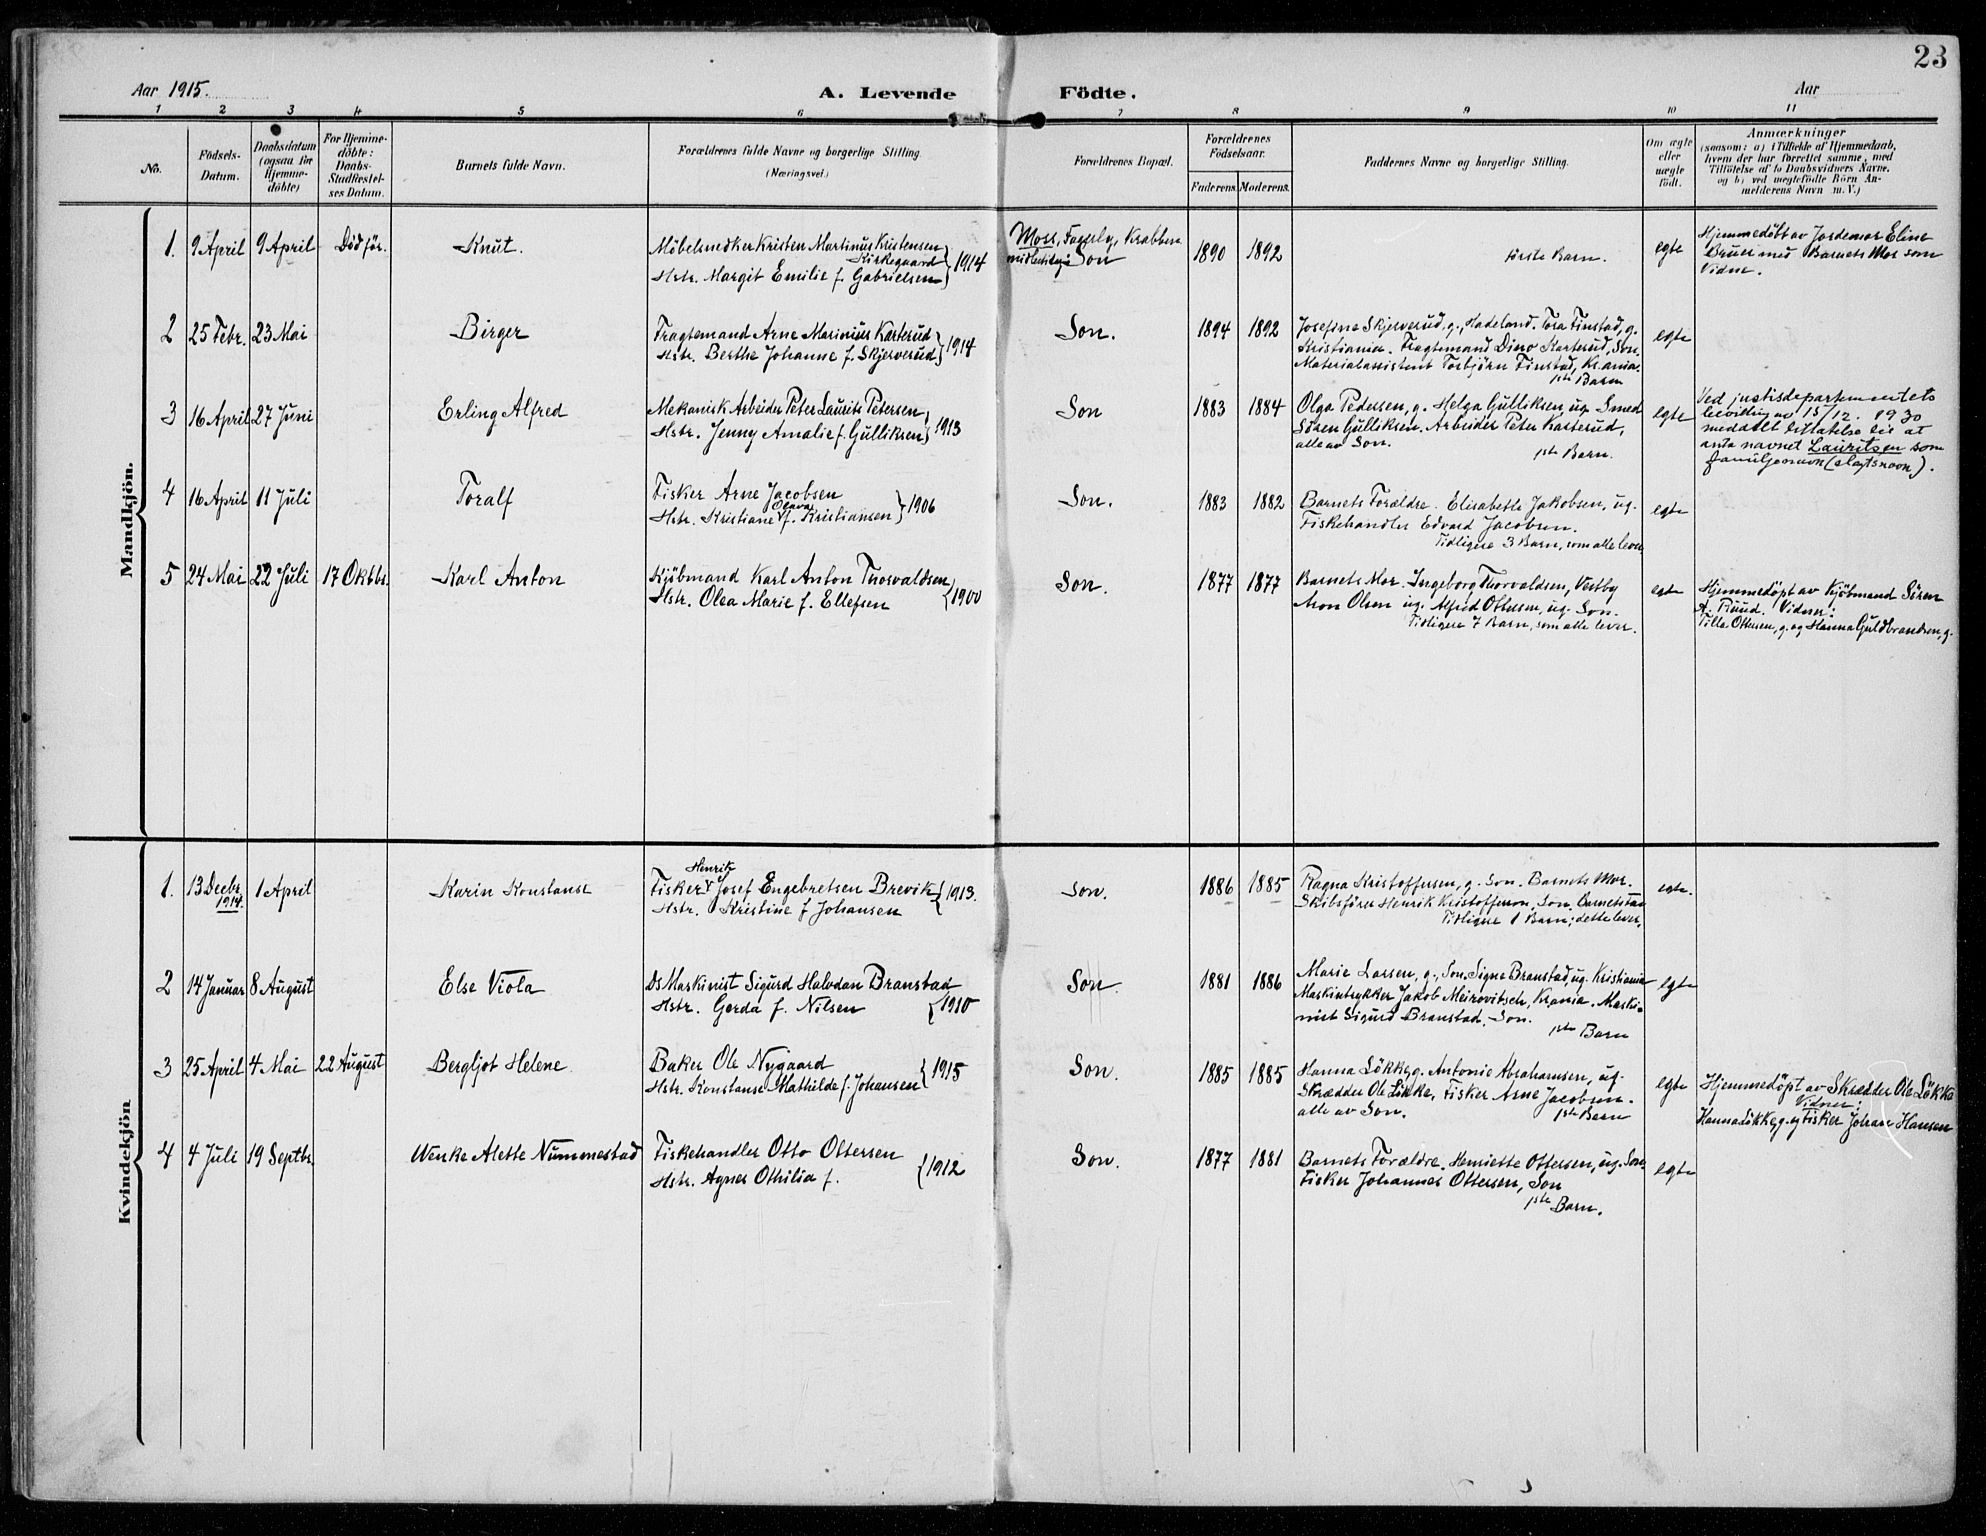 23
Aar 1915.
A. Levende Födte.
Aar
1 2 3 4 5 6 7 8 9 10 11
No.
Födsels-
Datum.
Daabsdatum
(ogsaa for
Hjemme-
döbte)
For Hjemme-
döbte:
Daabs-
Stadfæstel-
ses Datum.
Barnets fulde Navn.
Forældrenes fulde Navne og borgerlige Stilling.
(Næringsvei.)
Forældrenes Bopæl.
Forældrenes
Födselsaar.
Faderens. Moderens.
Faddernes Navne og borgerlige Stilling.
Om ægte
eller
uægte
födt.
Anmærkninger
(saasom: a) i Tilfælde af Hjemmedaab,
hvem der har forrettet samme, med
Tilföielse af to Daabsvidners Navne.
og b) ved uægtefödte Börn An-
melderens Navn m. V.)
Mandkjön.
1. 9 April 9 April Död för. Knut.
Möbelsnedker Kristen Martinus Kristensen
Kirkegaard
Hstr. Margit Emilie f. Gabrielsen } 1914
Moss,
midlertidig i Son
1890 1892
förste Barn.
egte
Hjemmedöbt av Jordemor Eline
Bruer med Barnets Mor som
Vidne.
2 25 Febr. 23 Mai Birger
Fragtemand Arne Marinius Karterud
Hstr. Berthe Johanne f. Skjerverud } 1914
Son.
1894 1892
Josefine Skjerverud, g., Hadeland. Tora Finstad, g.
Kristiania. Fragtemand Dino Karterud, Son.
Materialassistent Torbjörn Finstad, Kr.ania.
1ste Barn
egte
3 16 April 27 Juni Erling Alfred
Mekanisk Arbeider Peter Laurits Petersen
Hstr. Jenny Amalie f. Gulliksen } 1913
Son
1883 1884
Olga Pedersen, g. Helga Gulliksen, ug. Smed
Sören Gulliksen. Arbeider Peter Karterud,
alle av Son.
1ste Barn.
egte
Ved justisdepartementets
bevilling av 15/12. 1930
meddelt tillatelse til at
anta navnet Lauritsen som
familjenavn (slegtsnavn).
4 16 April 11 Juli Toralf
Fisker Arne Jacobsen
Olava
Hstr. Kristiane f. Kristiansen } 1906
Son.
1883 1882
Barnets Forældre. Elisabeth Jakobsen, ug.
Fiskehandler Edvard Jacobsen.
Tidligere 3 Barn, som alle lever.
egte
5 24 Mai 22 Juli 17 Oktbr. Karl Anton
Kjöbmand Karl Anton Thorvaldsen
Hstr. Olea Marie f. Ellefsen } 1900
Son.
1877 1877
Barnets Mor. Ingeborg Thorvaldsen, Vestby
Aron Olsen ug. Alfred Ottersen, ug. Son.
Tidligere 7 Barn, som alle lever.
egte
Hjemmedöpt av Kjöbmand Sören
A. Ruud. Vidner:
Tilla Ottersen, g. og Hanna Guldbrandsen, g.
Kvindekjön
1. 13 Decbr. 1914. 1 April Karin Konstanse
Henrik
Fisker Josef Engebretsen Brevik
Hstr. Kristine f Johansen } 1913.
Son.
1886 1885
Ragna Kristoffersen, g. Son. Barnets Mor.
Skibsförer Henrik Kristofferson, Son. Barnets Far
Tidligere 1 Barn; dette lever.
egte.
2 14 Januar 8 August Else Viola
Ds Maskinist Sigurd Halvdan Branstad
Hstr. Gerda f. Nilsen { 1910
Son.
1881 1886
Marie Larsen, g., Son. Signe Branstad, ug. Kristiania
Maskintrykker Jakob Meirovitsch, Krania. Maski-
nist Sigurd Branstad, Son.
1ste Barn
egte
3 25 April 4 Mai 22 August Bergljot Helene
Baker Ole Nygaard
Hstr. Konstanse Mathilde f. Johansen { 1915
Son.
1885 1885
Hanna Lökke g. Antonie Abrahamsen, ug.
Skrædder Ole Lökke, Fisker Arne Jacobsen.
alle av Son.
1ste Barn
egte
Hjemmedöpt av Skrædder Ole Lökke
Vidner:
Hanna Lökke g. og Fisker Johan Hansen
4 4 Juli 19 Septbr. Wenke Alette Nummestad
Fiskehandler Otto Ottersen
Hstr. Agnes Othilia f. { 1912
Son.
1877 1881
Barnets Forældre. Henriette Ottersen, ug. Son.
Fisker Johannes Ottersen, Son
1ste Barn.
egte